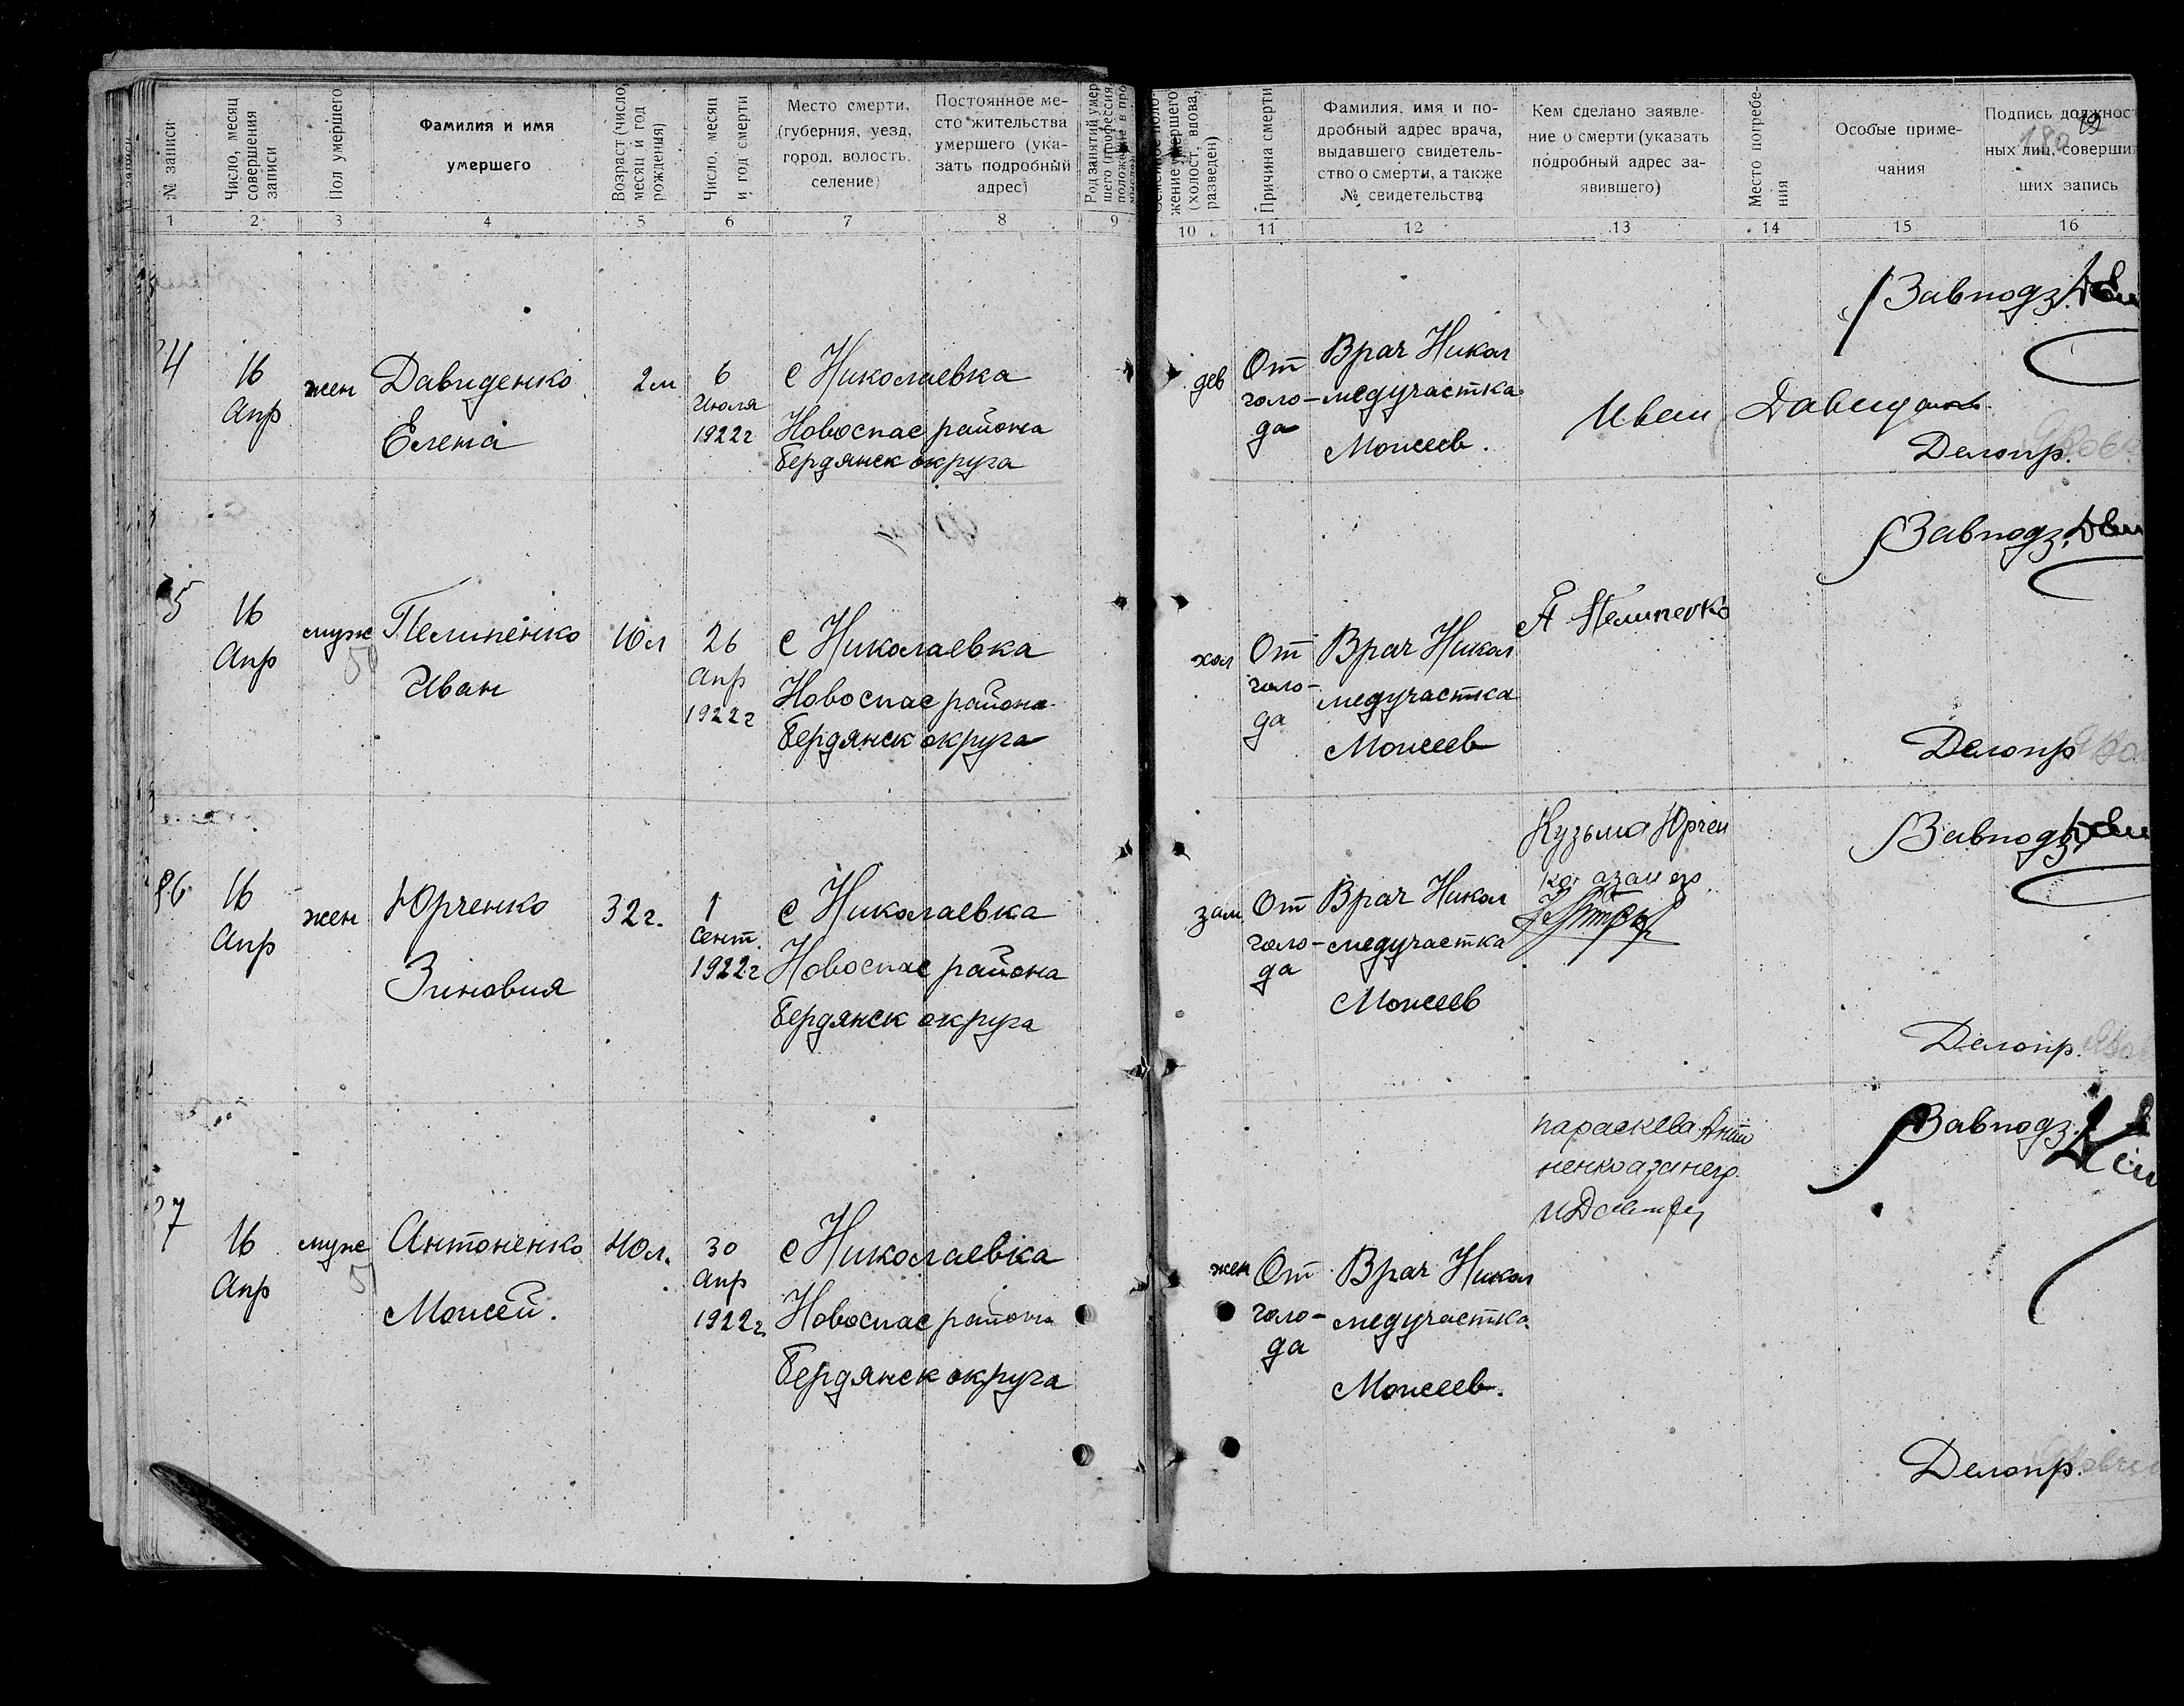 № записи
Число, месяц совершения записи
Пол умершего
Фамилия и имя
умершего
Возраст (число, месяц и год рождения)
Число, месяц и год смерти
Место смерти,
(губерния, уезд,
город, волость,
селение)
Постоянное ме-
сто жительства
умершего (ука-
зать подробный
адрес)
Род занятий умер
шего (профессия,
жение умершего
(холост, вдова,
разведен)
Причина смерти
Фамилия, имя и по-
дробный адрес врача,
выдавшего свидетель-
ство о смерти, а также
№ свидетельства
Кем сделано заявле-
ние о смерти (указать
подробный адрес за-
явившего)
Место погребе-
ния
Особые приме-
чания
Подпись должнос
ных лиц, соверши
ших запись
1 2 3 4 5 6 7 8 9 10 11 12 13 14 15 16
Завподз.
4
16
Апр
жен
Давиденко
Елена
2м
6
Июля
1922г
с Николаевка
Новоспас района
Бердянск округа
дев
От
голо-
да
Врач Никол
медучастка
Моисеев.
Иван
Делопр.
Завподз.
5
16
Апр
муж
Пелипенко
Иван
10л
26
Апр
1922г
с Николаевка
Новоспас района
Бердянск округа
хол
От
голо-
да
Врач Никол
медучастка
Моисеев
А Пелипенко
Делопр
Завподз
86
16
Апр
жен
Юрченко
Зиновия
32г.
1
Сент.
1922г
с Николаевка
Новоспас района
Бердянск округа
зам
От
голо-
да
Врач Никол
медучастка
Моисеев
Кузьма Юрчен
ко
Делопр.
Завподз.
7
16
Апр
муж
Антоненко
Моисей.
40л.
30
Апр
1922г.
с Николаевка
Новоспас района
Бердянск округа
жен
От
голо-
да
Врач Никол
медучастка
Моисеев.
Параскева Анто
ненко
Делопр.